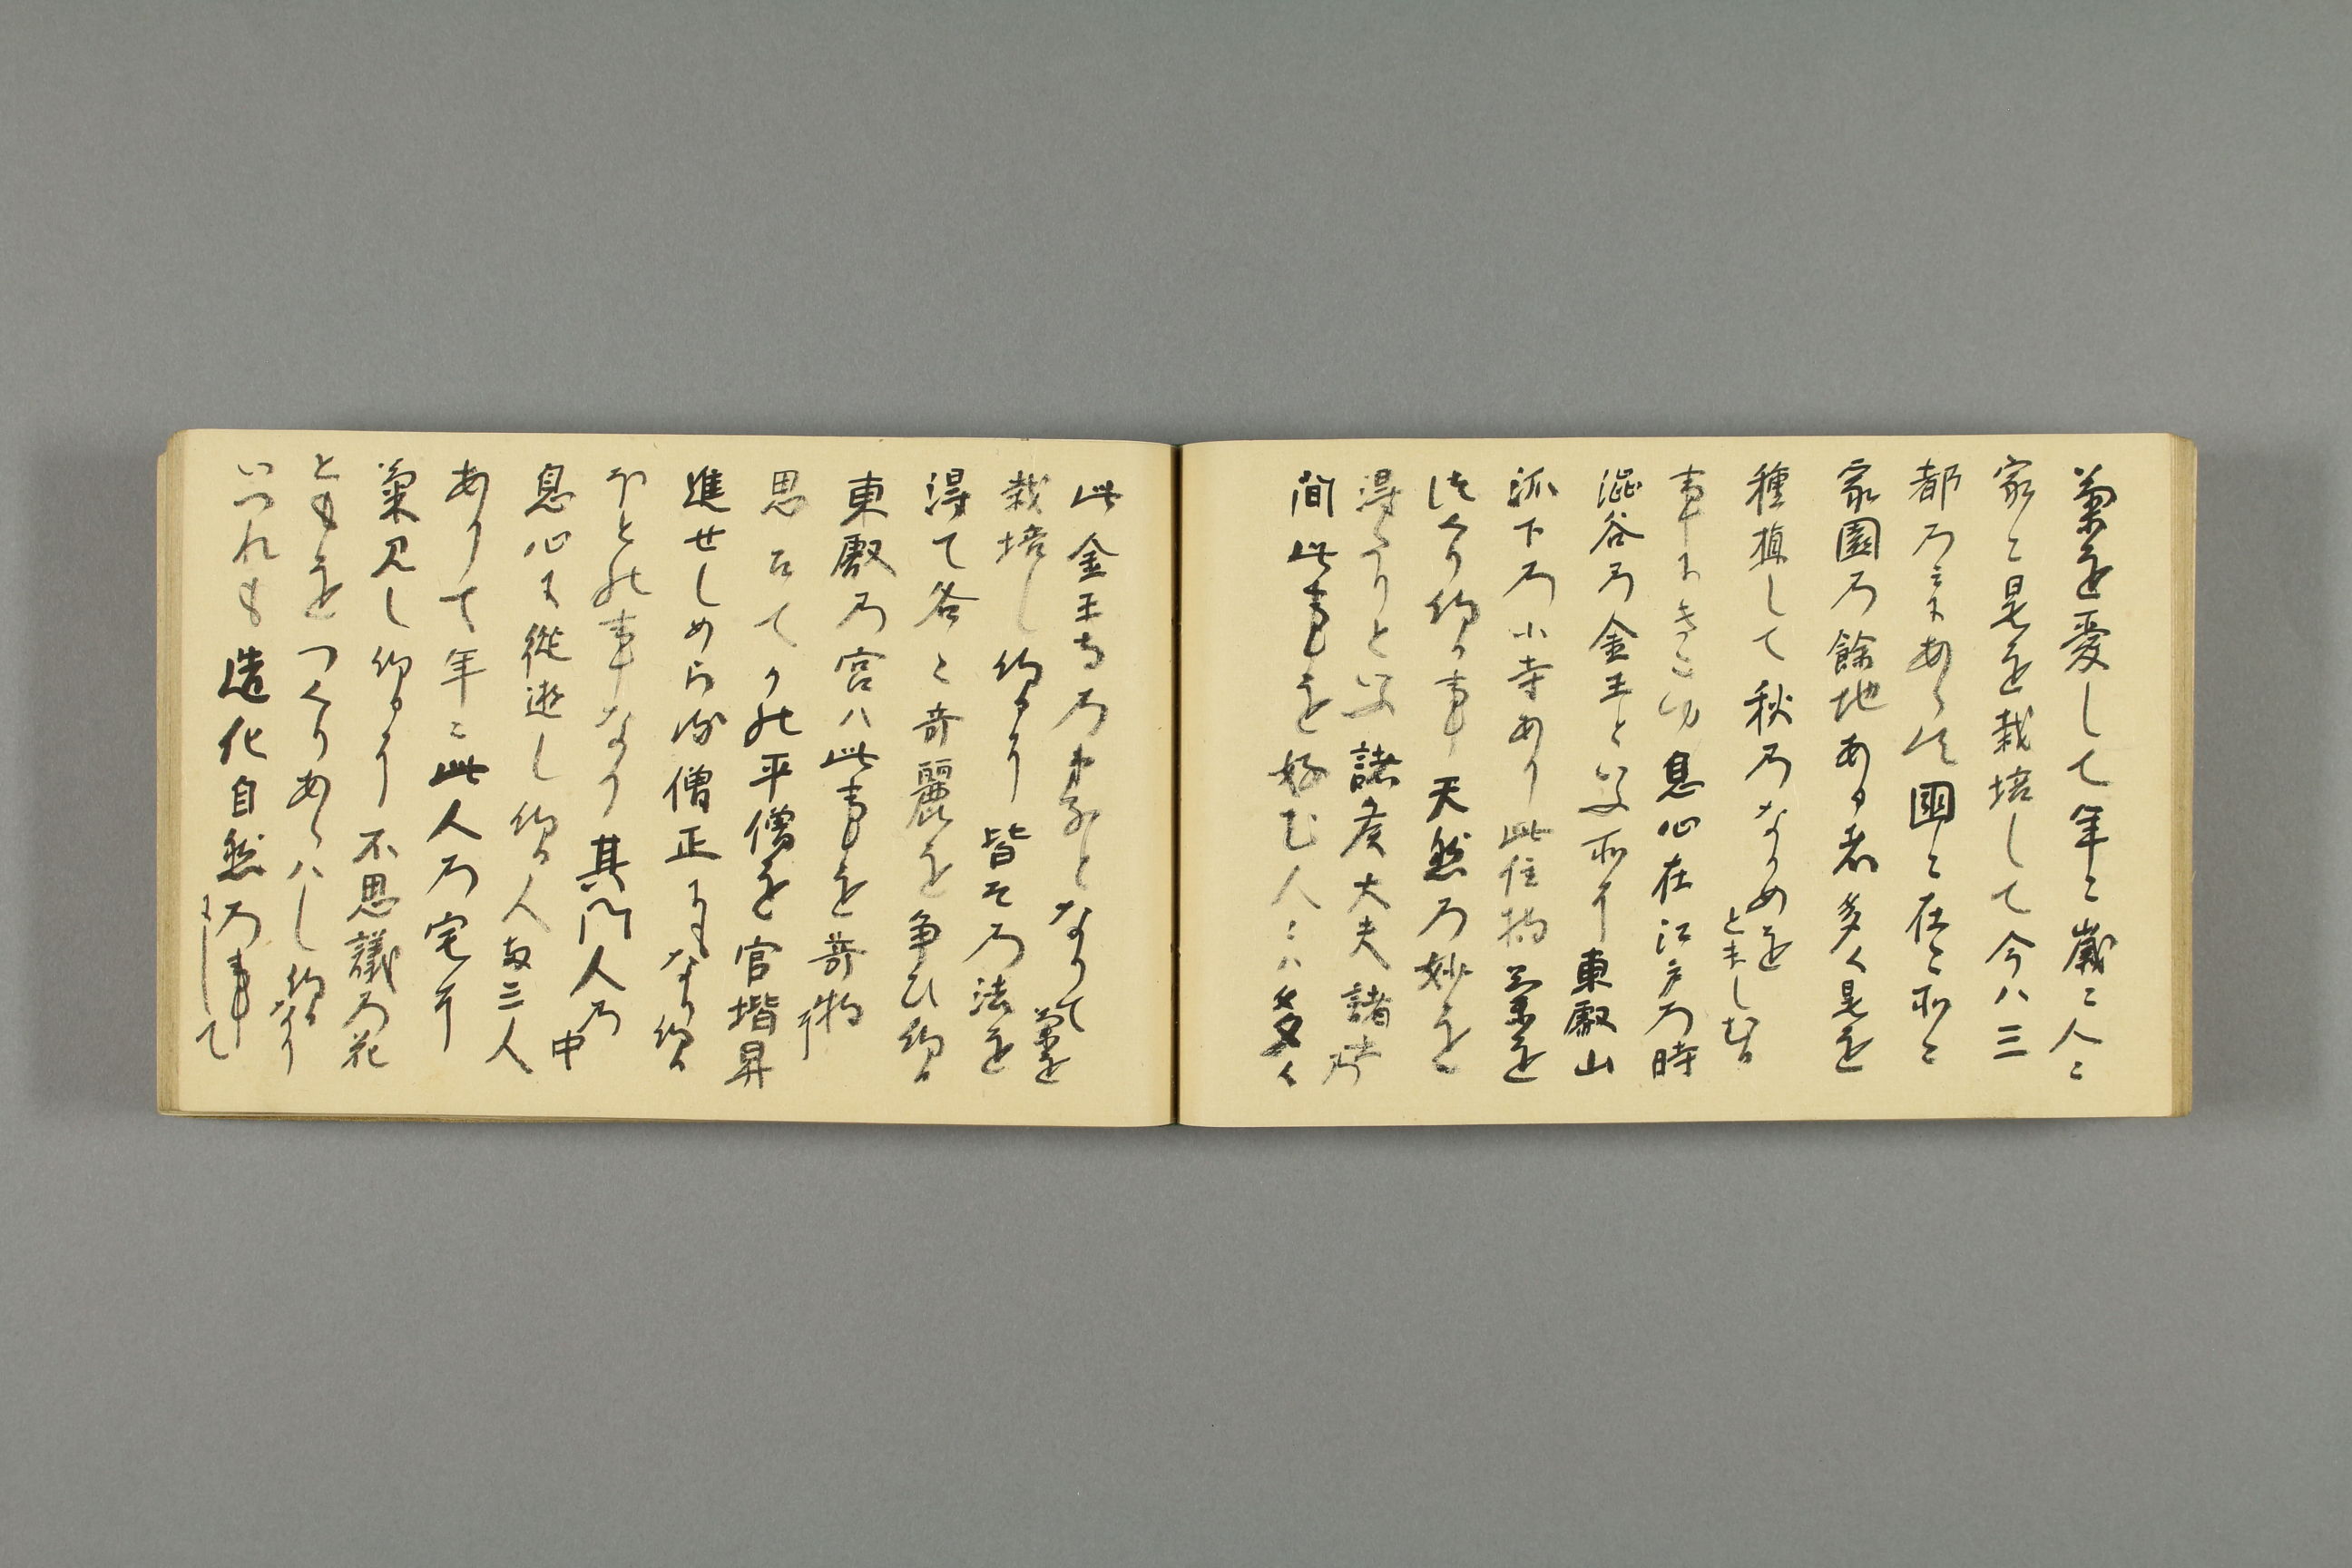 菊を愛して年々歳々人々
家々是を栽培して今ハ三
都乃ミにあらす国々在々所々
家園乃餘地ある者多く是を
種植して秋乃なかめを
ともしむる
事にきこゆ息心在江戸乃時
澁谷乃金王と いふ所に東叡山
派下乃小寺あり此住持菊を
つくり給る事天然乃妙を
得たりといふ諸侯大夫諸士乃
間此事を好む人々ハ多く
此金王寺乃弟子となりて菊を
栽培し給るに皆其乃法を
得て各々奇麗を争ひ給る
東叡乃宮ハ此事を奇物に
思召てかの平僧を官階昇
進せしめられ僧正になり給る
ほとの事なり其門人乃中
息心に従遊し給る人両三人
ありて年々此人乃宅に
菊見し給るに不思議乃花
ともをつくりあらハし給るなり
いつれも造化自然乃事にして